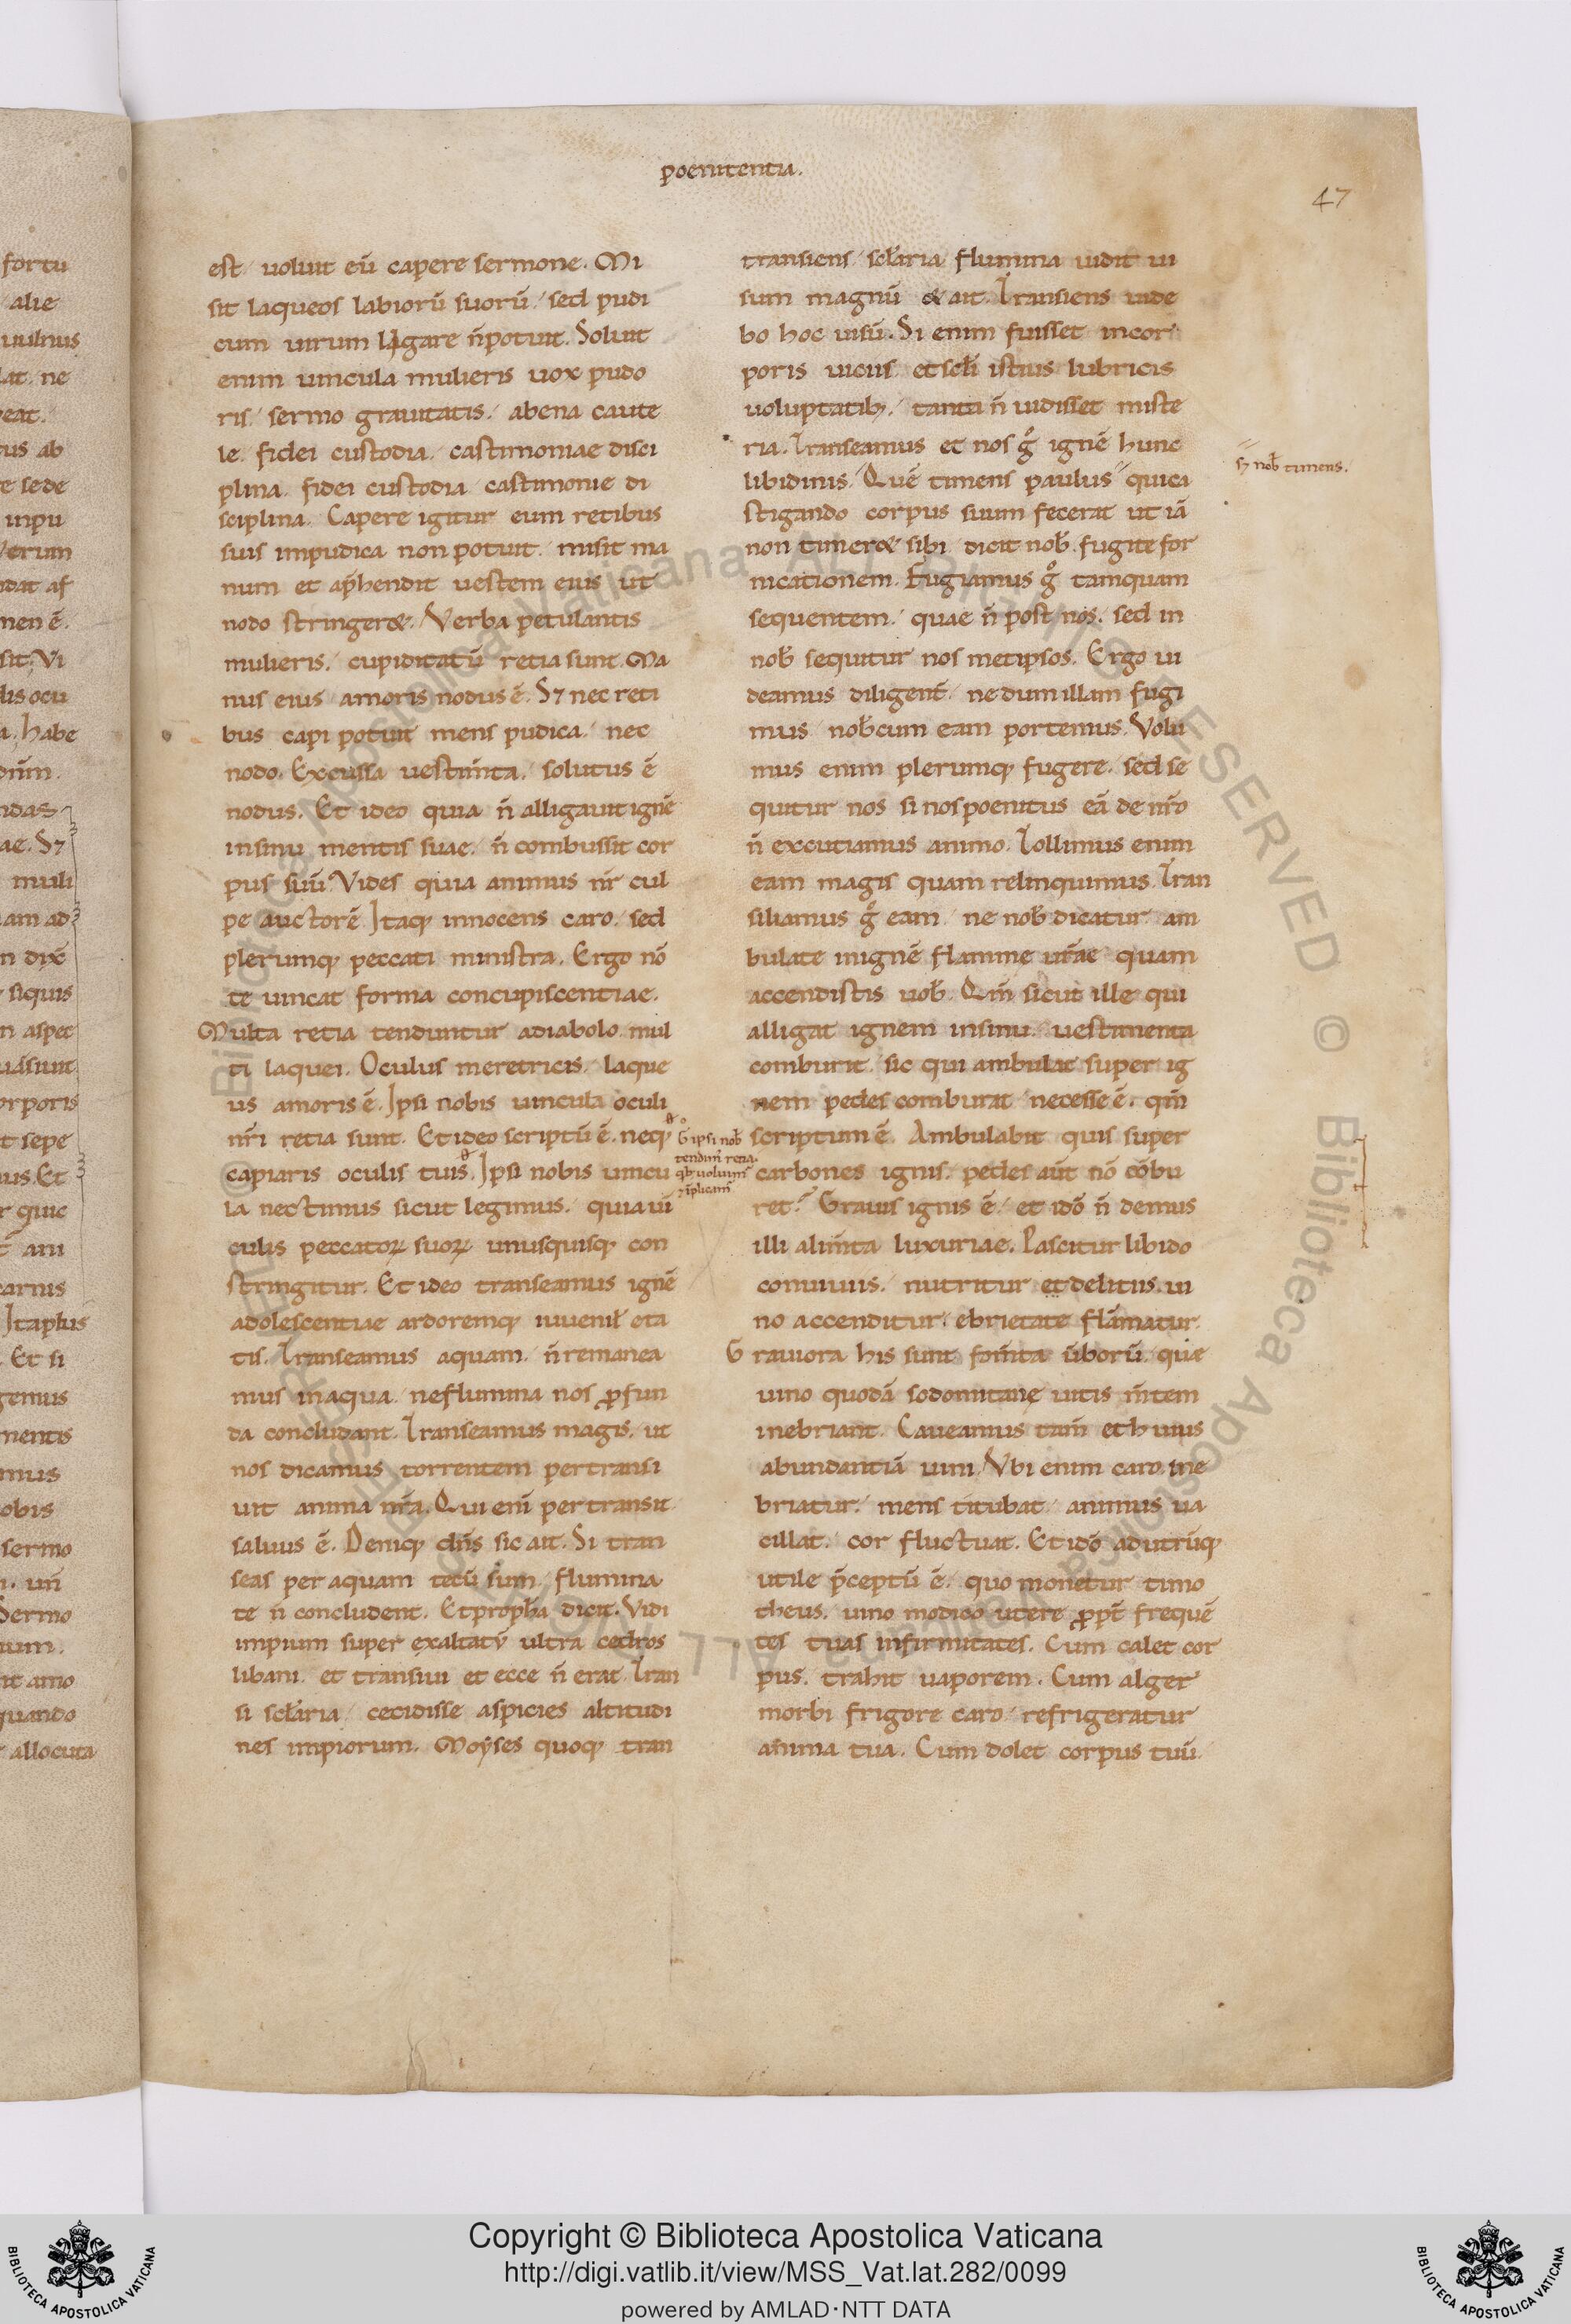 poenitentia.
47
est. uoluit eū capere sermone. Mi
sit laqueos labiorū suorū. sed pudi
cum uirum ligare n̄ potuit. Soluit
enim uincula mulieris uox pudo
ris. sermo grauitatis. abena caute
le. fidei custodia. castimoniae disci
plina. fidei custodia castimonie di
sciplina. Capere igitur eum retibus
suis impudica non potuit. misit ma
num et ap̄hendit uestem eius ut
nodo stringer&. Verba petulantis
mulieris. cupiditatū retia sunt. Ma
nus eius amoris nodus ē. S; nec reti
bus capi potuit mens pudica. nec
nodo. Excussa uestim̄ta. solutus ē
nodus. Et ideo quia n̄ alligauit ignē
insinu mentis suae. n̄ combussit cor
pus suū. Vides quia animus nr̄ cul
pe auctorē. Itaq; innocens caro. sed
plerumq; peccati ministra. Ergo nō
te uincat forma concupiscentiae.
Multa retia tenduntur adiabolo. mul
ti laquei. Oculus meretricis. laque
us amoris ē. Ipsi nobis uincula oculi
nr̄i retia sunt. Et ideo scriptū ē. neq;
capiaris oculis tuis. Ipsi nobis uincu
la nectimus sicut legimus. quia uī
culis peccatoꝝ suoꝝ unusquisq; con
stringitur. Et ideo transeamus ignē
adolescentiae ardoremq; iuuenil̄ eta
tis. Transeamus aquam. n̄ remanea
mus inaqua. neflumina nos ꝓfun
da concludant. Transeamus magis. ut
nos dicamus torrentem pertransi
uit anima nr̄a. Qui eni pertransit
saluus ē. Deniq; dn̄s sic ait. Si tran
seas per aquam tecū sum. flumina
te n̄ concludent. Et proph̄a dicit. Vidi
impium super exaltatū ultra cedros
libani. et transiui et ecce n̄ erat. Tran
si scl̄aria. cecidisse aspicies altitudi
nes impiorum. Moẏses quoq; tran
G ipsi nob̄
tendim̄ retia.
qb; uoluim̄
⁊ īplicam̄
transiens scl̄aria flumina uidit ui
sum magnū & ait. Transiens uide
bo hoc uisū. Si enim fuisset incor
poris uiciis. et scl̄i istius lubricis
uoluptatib;. tanta n̄ uidisset miste
ria. Transeamus et nos g̊ ignē hunc
libidinis. Quē timens paulus quica
stigando corpus suum fecerat ut iā
non timer& sibi. dicit nob̄. fugite for
nicationem. Fugiamus g̊ tamquam
sequentem. quae n̄ post nos. sed in
nob̄ sequitur nos metipsos. Ergo ui
deamus diligent̄. nedum illam fugi
mus nob̄cum eam portemus. Volu
mus enim plerumq; fugere. sed se
quitur nos si nos poenitus eā de nr̄o
n̄ excutiamus animo. Tollimus enim
eam magis quam relinquimus. Tran
siliamus g̊ eam. ne nob̄ dicatur am
bulate inignē flamme ur̄ae quam
accendistis uob̄. Qm̄ sicut ille qui
alligat ignem insinu. uestimenta
comburit. sic qui ambulat super ig
nem pedes comburat necesse ē. qm̄
scriptum ē. Ambulabit quis super
carbones ignis. pedes aut̄ nō cōbu
ret. Grauis ignis ē. et idō n̄ demus
illi alim̄ta luxuriae. Pascitur libido
conuiuiis. nutritur et delitiis. ui
no accenditur. ebrietate flāmatur.
Grauiora his sunt fom̄ta ūborū. que
uino quodā sodomitane uitis m̄tem
inebriant. Caueamus tam̄ et huius
abundantiā uini. Vbi enim caro ine
briatur. mens titubat. animus ua
cillat. cor fluctuat. Et idō ad utrūq;
utile p̄ceptū ē. quo monetur timo
theus. uino modico utere ꝓpt̄ frequē
tes tuas infirmitates. Cum calet cor
pus. trahit uaporem. Cum alget
morbi frigore caro. refrigeratur
anima tua. Cum dolet corpus tuū.
s; nob̄ timens.
Copyright © Biblioteca Apostolica Vaticana
http://digi.vatlib.it/view/MSS_Vat.lat.282/0099
powered by AMLAD·NTT DATA
BIBLIOTECA APOSTOLICA VATICANA
BIBLIOTECA APOSTOLICA VATICANA